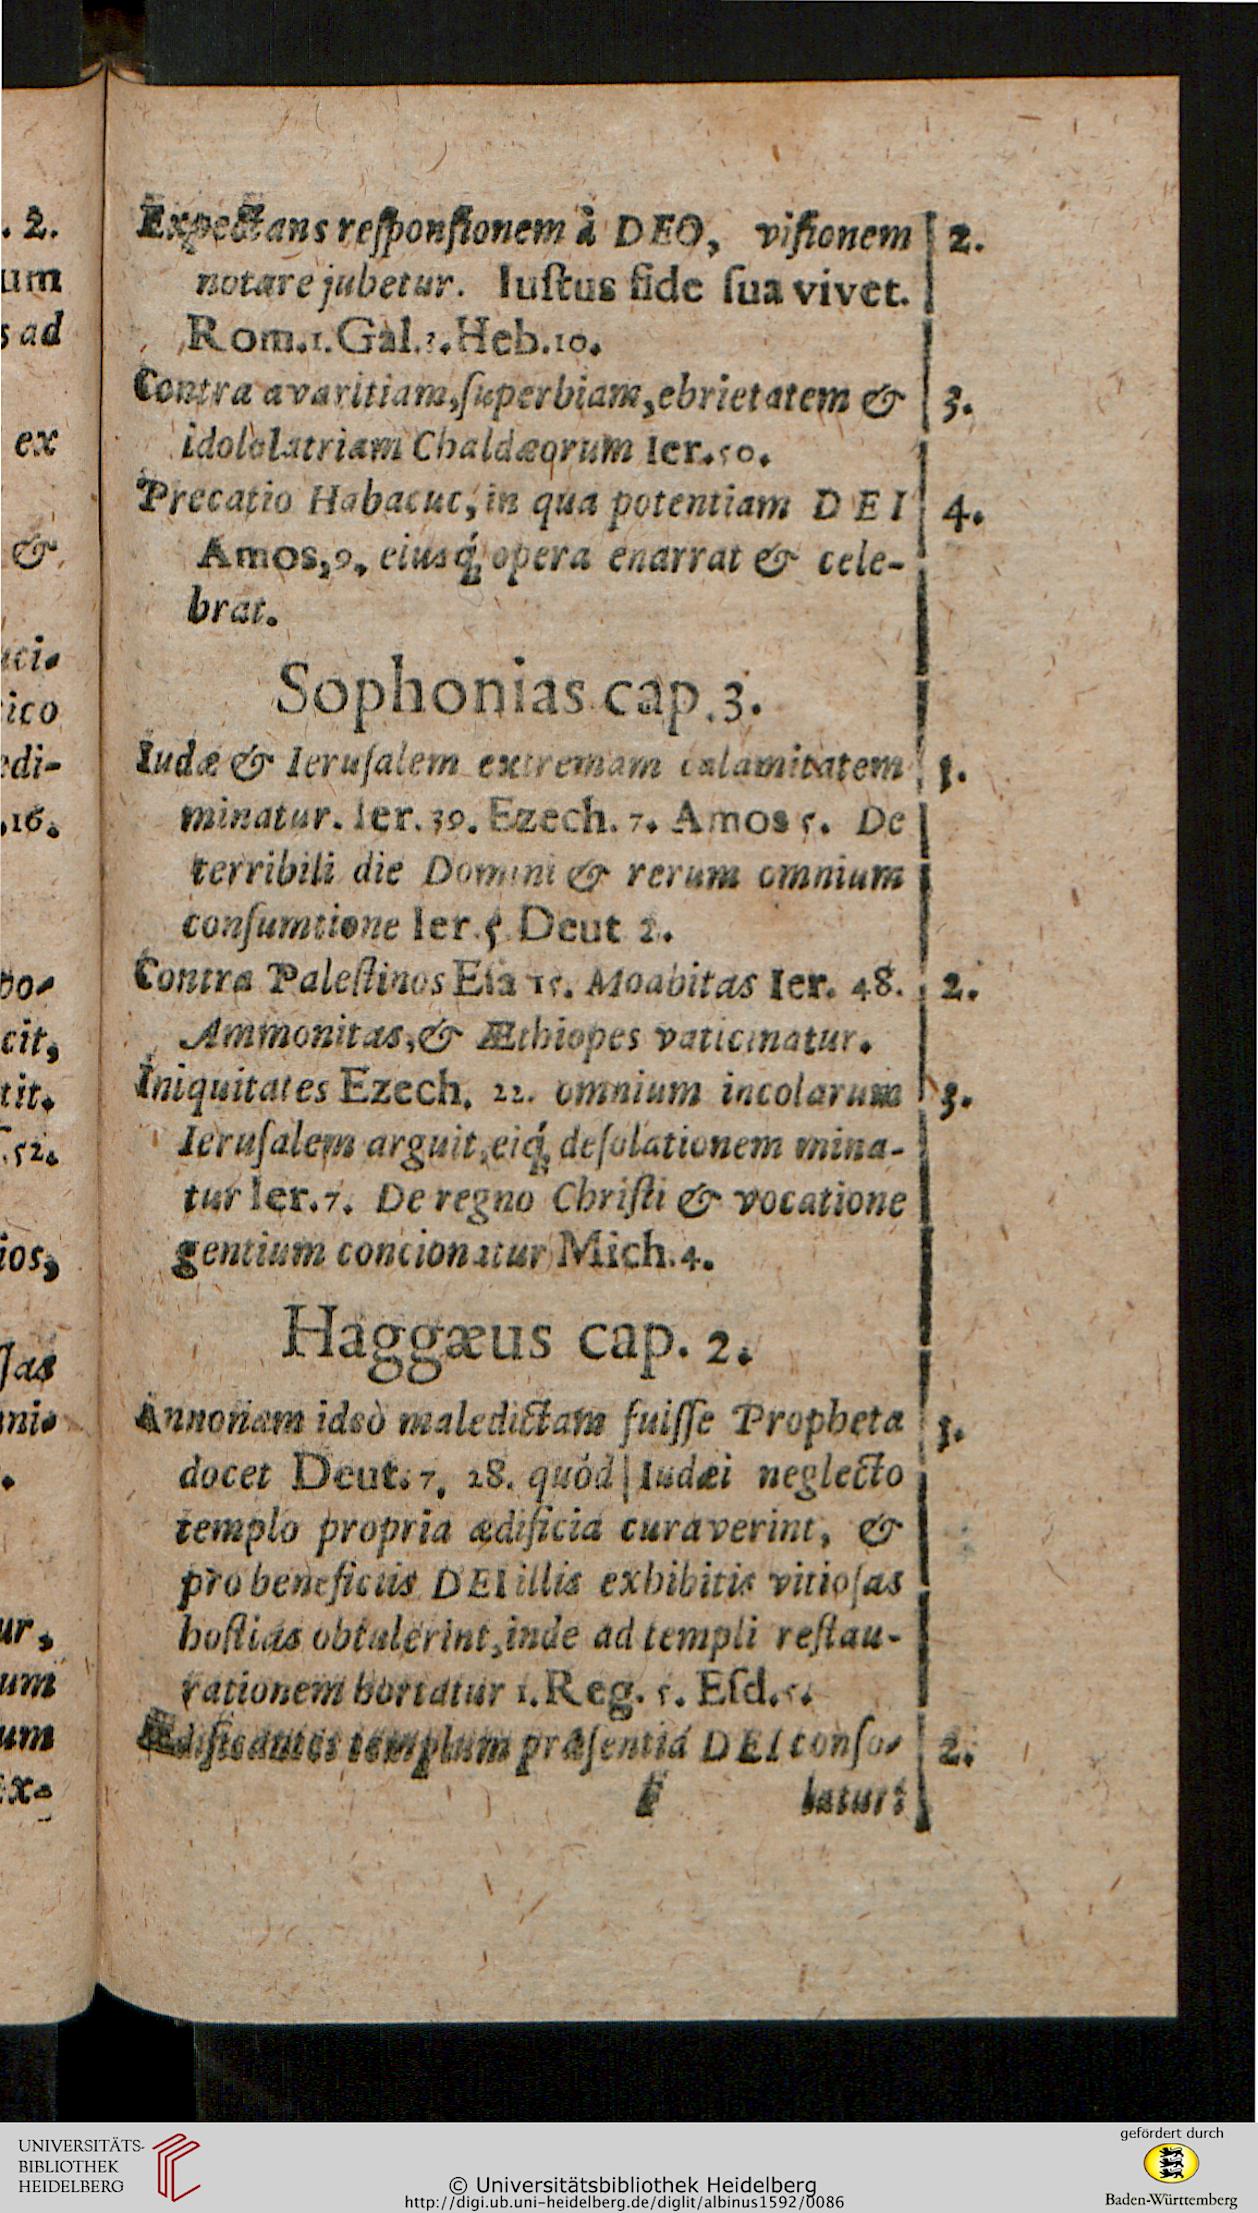 Expectans responsionem à DEO, visionem 2.
notare jubetur. Iustus fide sua vivet.
Rom.1.Gal.3.Heb.10.
Contra avaritiam,superbiam,ebrietatem & 3.
idololatriam Chaldæorum Ier.50.
Precatio Habacuc,in qua potentiam DEI 4.
Amos,9, eiusq́; opera enarrat & cele-
brat.
Sophonias cap.3.
Iudæ & Ierusalem extremam calamitatem 1.
minatur. Ier.39. Ezech.7. Amos 5. De
terribili die Domini & rerum omnium
consumtione Ier.5 Deut 2.
Contra Palestinos Esa 15. Moabitas Ier. 48. 2.
Ammonitas,& Æthiopes vaticinatur.
Iniquitates Ezech. 22. omnium incolarum 3.
Ierusalem arguit,eiq́; desolationem mina-
tur Ier.7. De regno Christi & vocatione
gentium concionatur Mich.4.
Haggæus cap. 2.
Annonam ideò maledictam fuisse Propheta 1.
docet Deut. 7, 28. quód Iudæi neglecto
templo propria ædificia curaverint, &
pro beneficiis DEI illis exhibitis vitiosas
hostias obtulerint,inde ad templi restau-
rationem hortatur 1.Reg. 5. Esd.5.
Ædificantes templum præsentiá DEI conso- 2.
F latur:
. 2.
um
s ad
ex
&
uci-
ico
edi-
,16.
cit,
tit.
.52.
ios,
sas
ni-
ur,
um
um
ex-
UNIVERSITÄTS-
BIBLIOTHEK
HEIDELBERG
© Universitätsbibliothek Heidelberg
http://digi.ub.uni-heidelberg.de/diglit/albinus1592/0086
gefördert durch
Baden-Württemberg